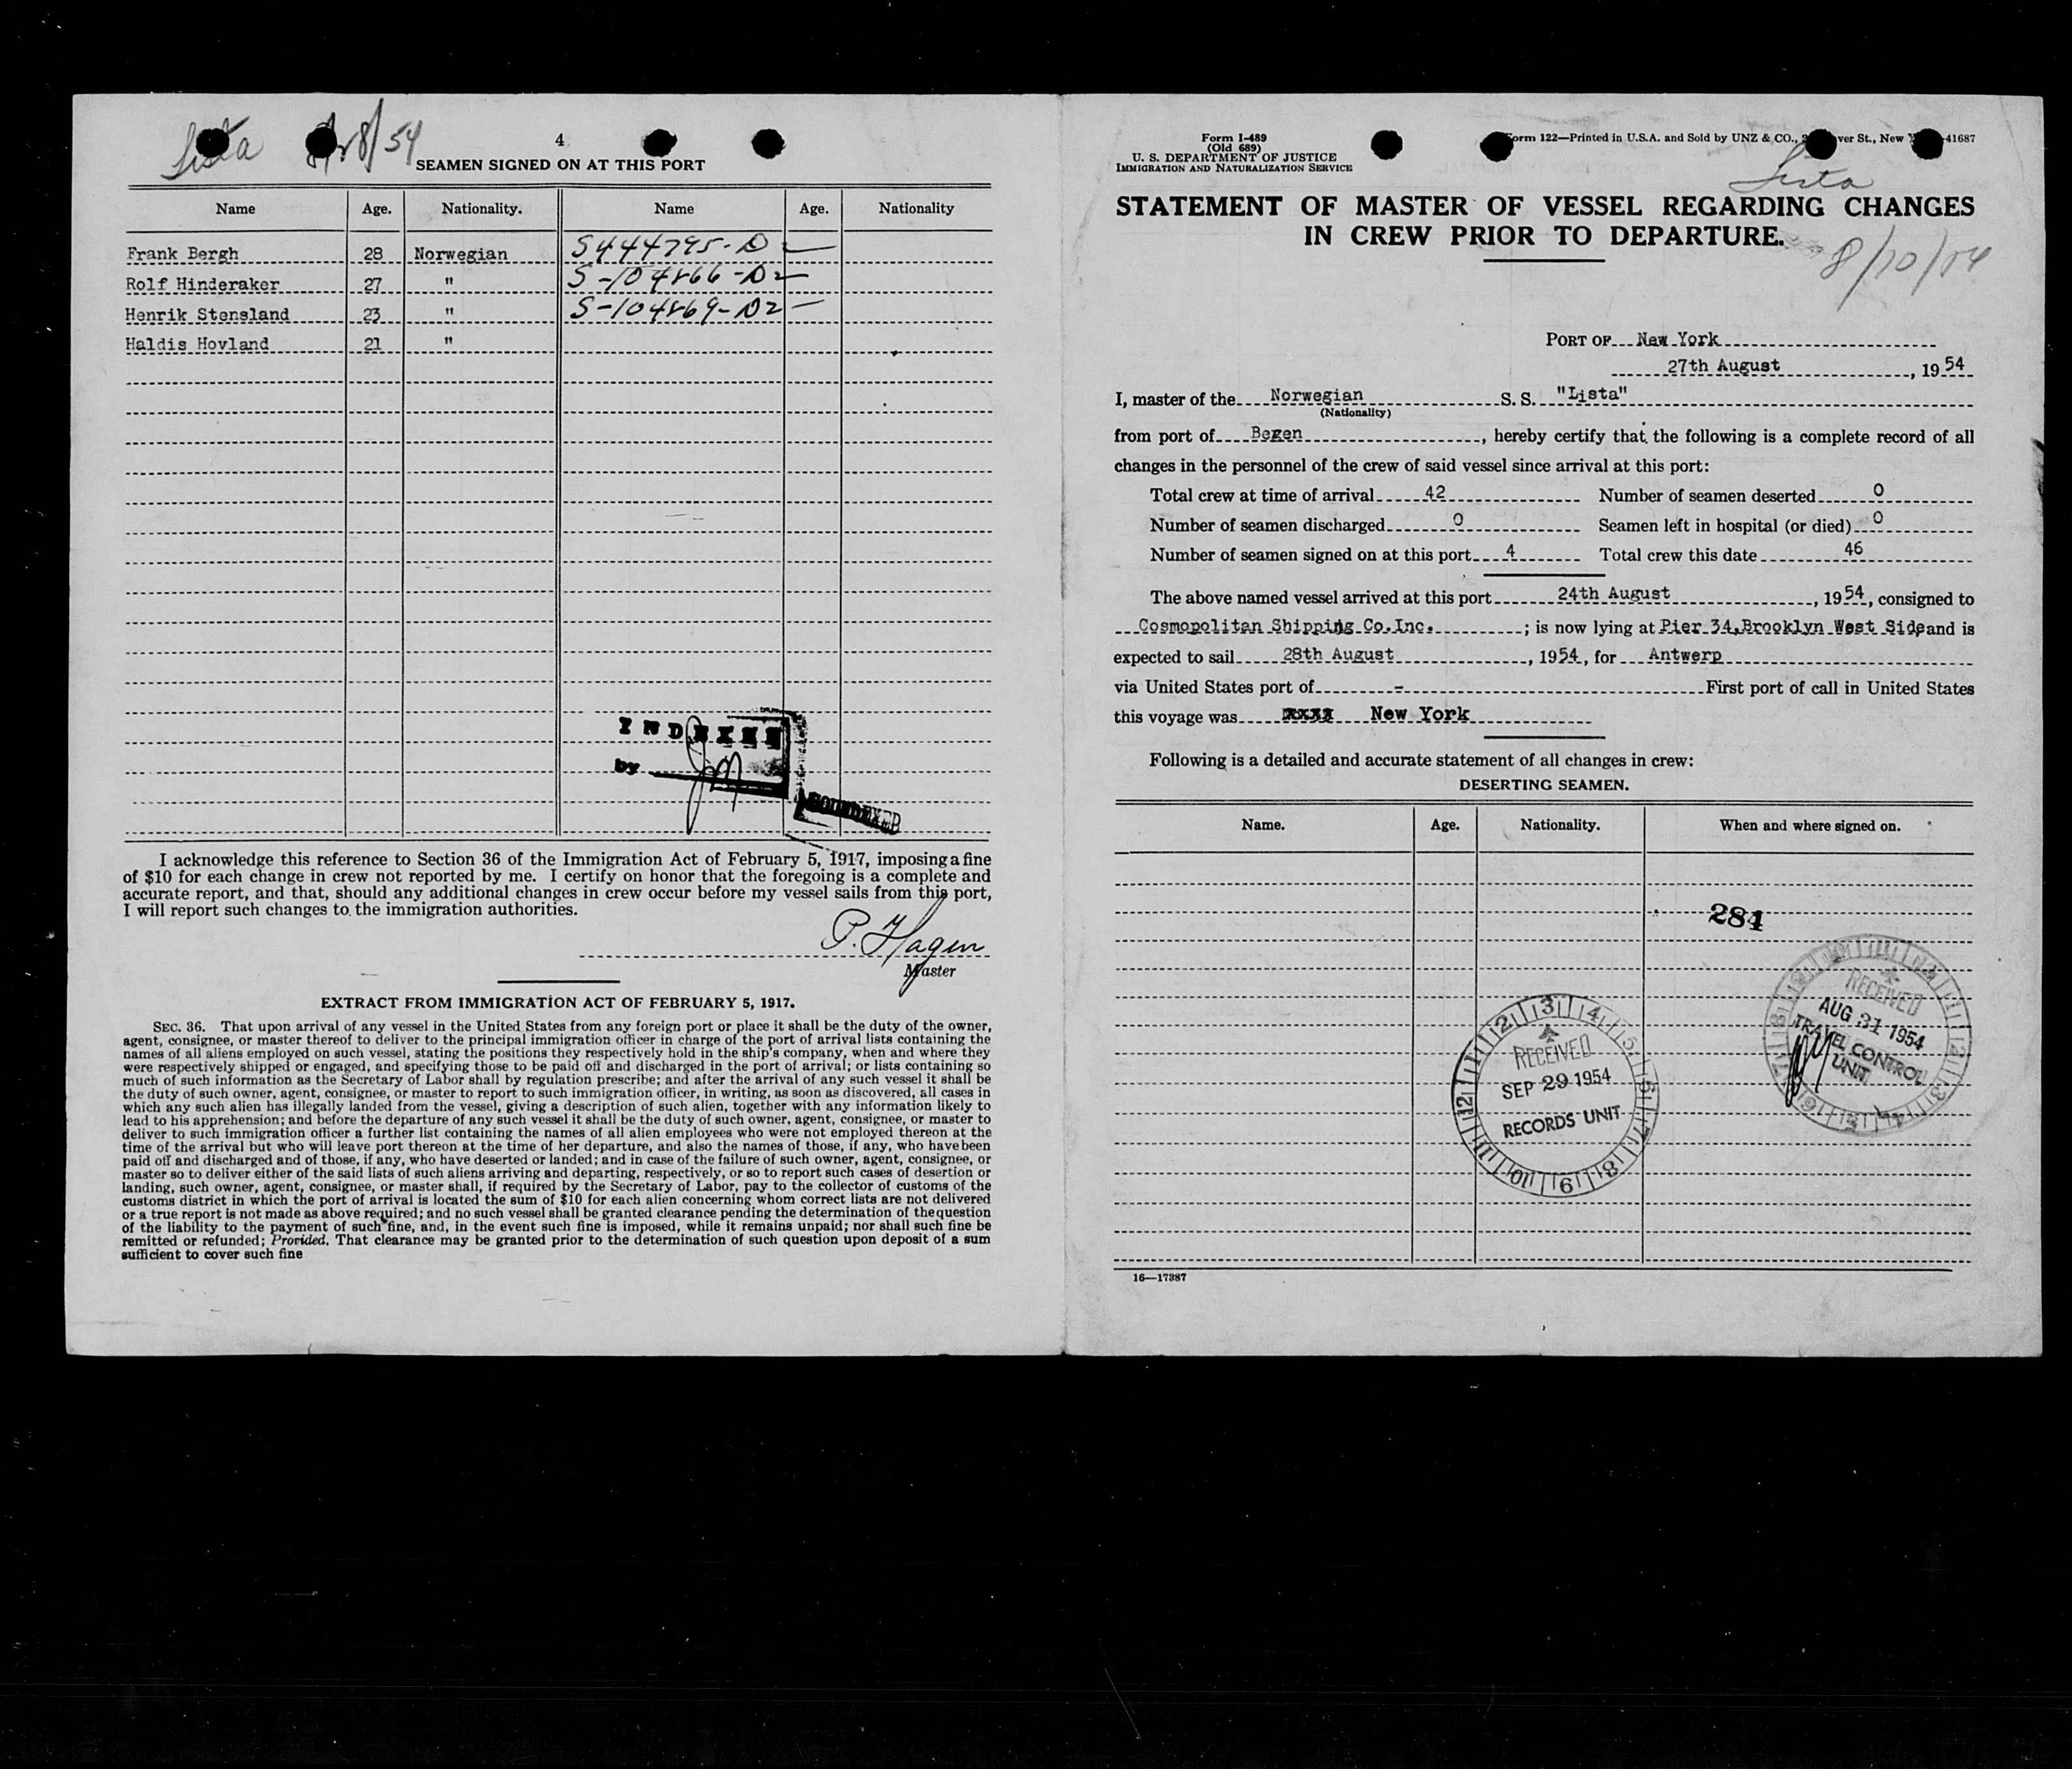 Lista 8/54
4
SEAMEN SIGNED ON AT THIS PORT
Name Age. Nationality. Name Age. Nationality
Frank Bergh 28 Norwegian S444795-D
Rolf Hinderaker 27 "
Henrik Stensland 23 "
Haldis Hovland 21 "
INDEXED
by
I acknowledge this reference to Section 36 of the Immigration Act of February 5, 1917, imposing a fine
of $10 for each change in crew not reported by me. I certify on honor that the foregoing is a complete and
accurate report, and that, should any additional changes in crew occur before my vessel sails from this port,
I will report such changes to the immigration authorities.
P. Hagen
Master
EXTRACT FROM IMMIGRATION ACT OF FEBRUARY 5, 1917.
SEC. 36. That upon arrival of any vessel in the United States from any foreign port or place it shall be the duty of the owner,
agent, consignee, or master thereof to deliver to the principal immigration officer in charge of the port of arrival lists containing the
names of all aliens employed on such vessel, stating the positions they respectively hold in the ship's company, when and where they
were respectively shipped or engaged, and specifying those to be paid off and discharged in the port of arrival; or lists containing so
much of such information as the Secretary of Labor shall by regulation prescribe; and after the arrival of any such vessel it shall be
the duty of such owner, agent, consignee, or master to report to such immigration officer, in writing, as soon as discovered, all cases in
which any such alien has illegally landed from the vessel, giving a description of such alien, together with any information likely to
lead to his apprehension; and before the departure of any such vessel it shall be the duty of such owner, agent, consignee, or master to
deliver to such immigration officer a further list containing the names of all alien employees who were not employed thereon at the
time of the arrival but who will leave port thereon at the time of her departure, and also the names of those, if any, who have been
paid off and discharged and of those, if any, who have deserted or landed; and in case of the failure of such owner, agent, consignee, or
master so to deliver either of the said lists of such aliens arriving and departing, respectively, or so to report such cases of desertion or
landing, such owner, agent, consignee, or master shall, if required by the Secretary of Labor, pay to the collector of customs of the
customs district in which the port of arrival is located the sum of $10 for each alien concerning whom correct lists are not delivered
or a true report is not made as above required; and no such vessel shall be granted clearance pending the determination of the question
of the liability to the payment of such fine, and, in the event such fine is imposed, while it remains unpaid; nor shall such fine be
remitted or refunded; Provided, That clearance may be granted prior to the determination of such question upon deposit of a sum
sufficient to cover such fine
Form I-489
(Old 689)
U. S. DEPARTMENT OF JUSTICE
IMMIGRATION AND NATURALIZATION SERVICE
orm 122—Printed in U.S.A. and Sold by UNZ & CO., ver St., New 41687
Lista
STATEMENT OF MASTER OF VESSEL REGARDING CHANGES
IN CREW PRIOR TO DEPARTURE.
8/10/54
PORT OF New York
27th August, 1954
I, master of the Norwegian S. S. "Lista"
(Nationality)
from port of Begen, hereby certify that the following is a complete record of all
changes in the personnel of the crew of said vessel since arrival at this port:
Total crew at time of arrival 42 Number of seamen deserted 0
Number of seamen discharged 0 Seamen left in hospital (or died) 0
Number of seamen signed on at this port 4 Total crew this date 46
The above named vessel arrived at this port 24th August, 1954, consigned to
Cosmopolitan Shipping Co.Inc.; is now lying at Pier 34,Brooklyn West Side and is
expected to sail 28th August, 1954, for Antwerp
via United States port of - First port of call in United States
this voyage was xxxx New York
Following is a detailed and accurate statement of all changes in crew:
DESERTING SEAMEN.
Name. Age. Nationality. When and where signed on.
284
RECEIVED
AUG 31 1954
TRAVEL CONTROL
UNIT
RECEIVED
SEP 29 1954
RECORDS UNIT
16—17387